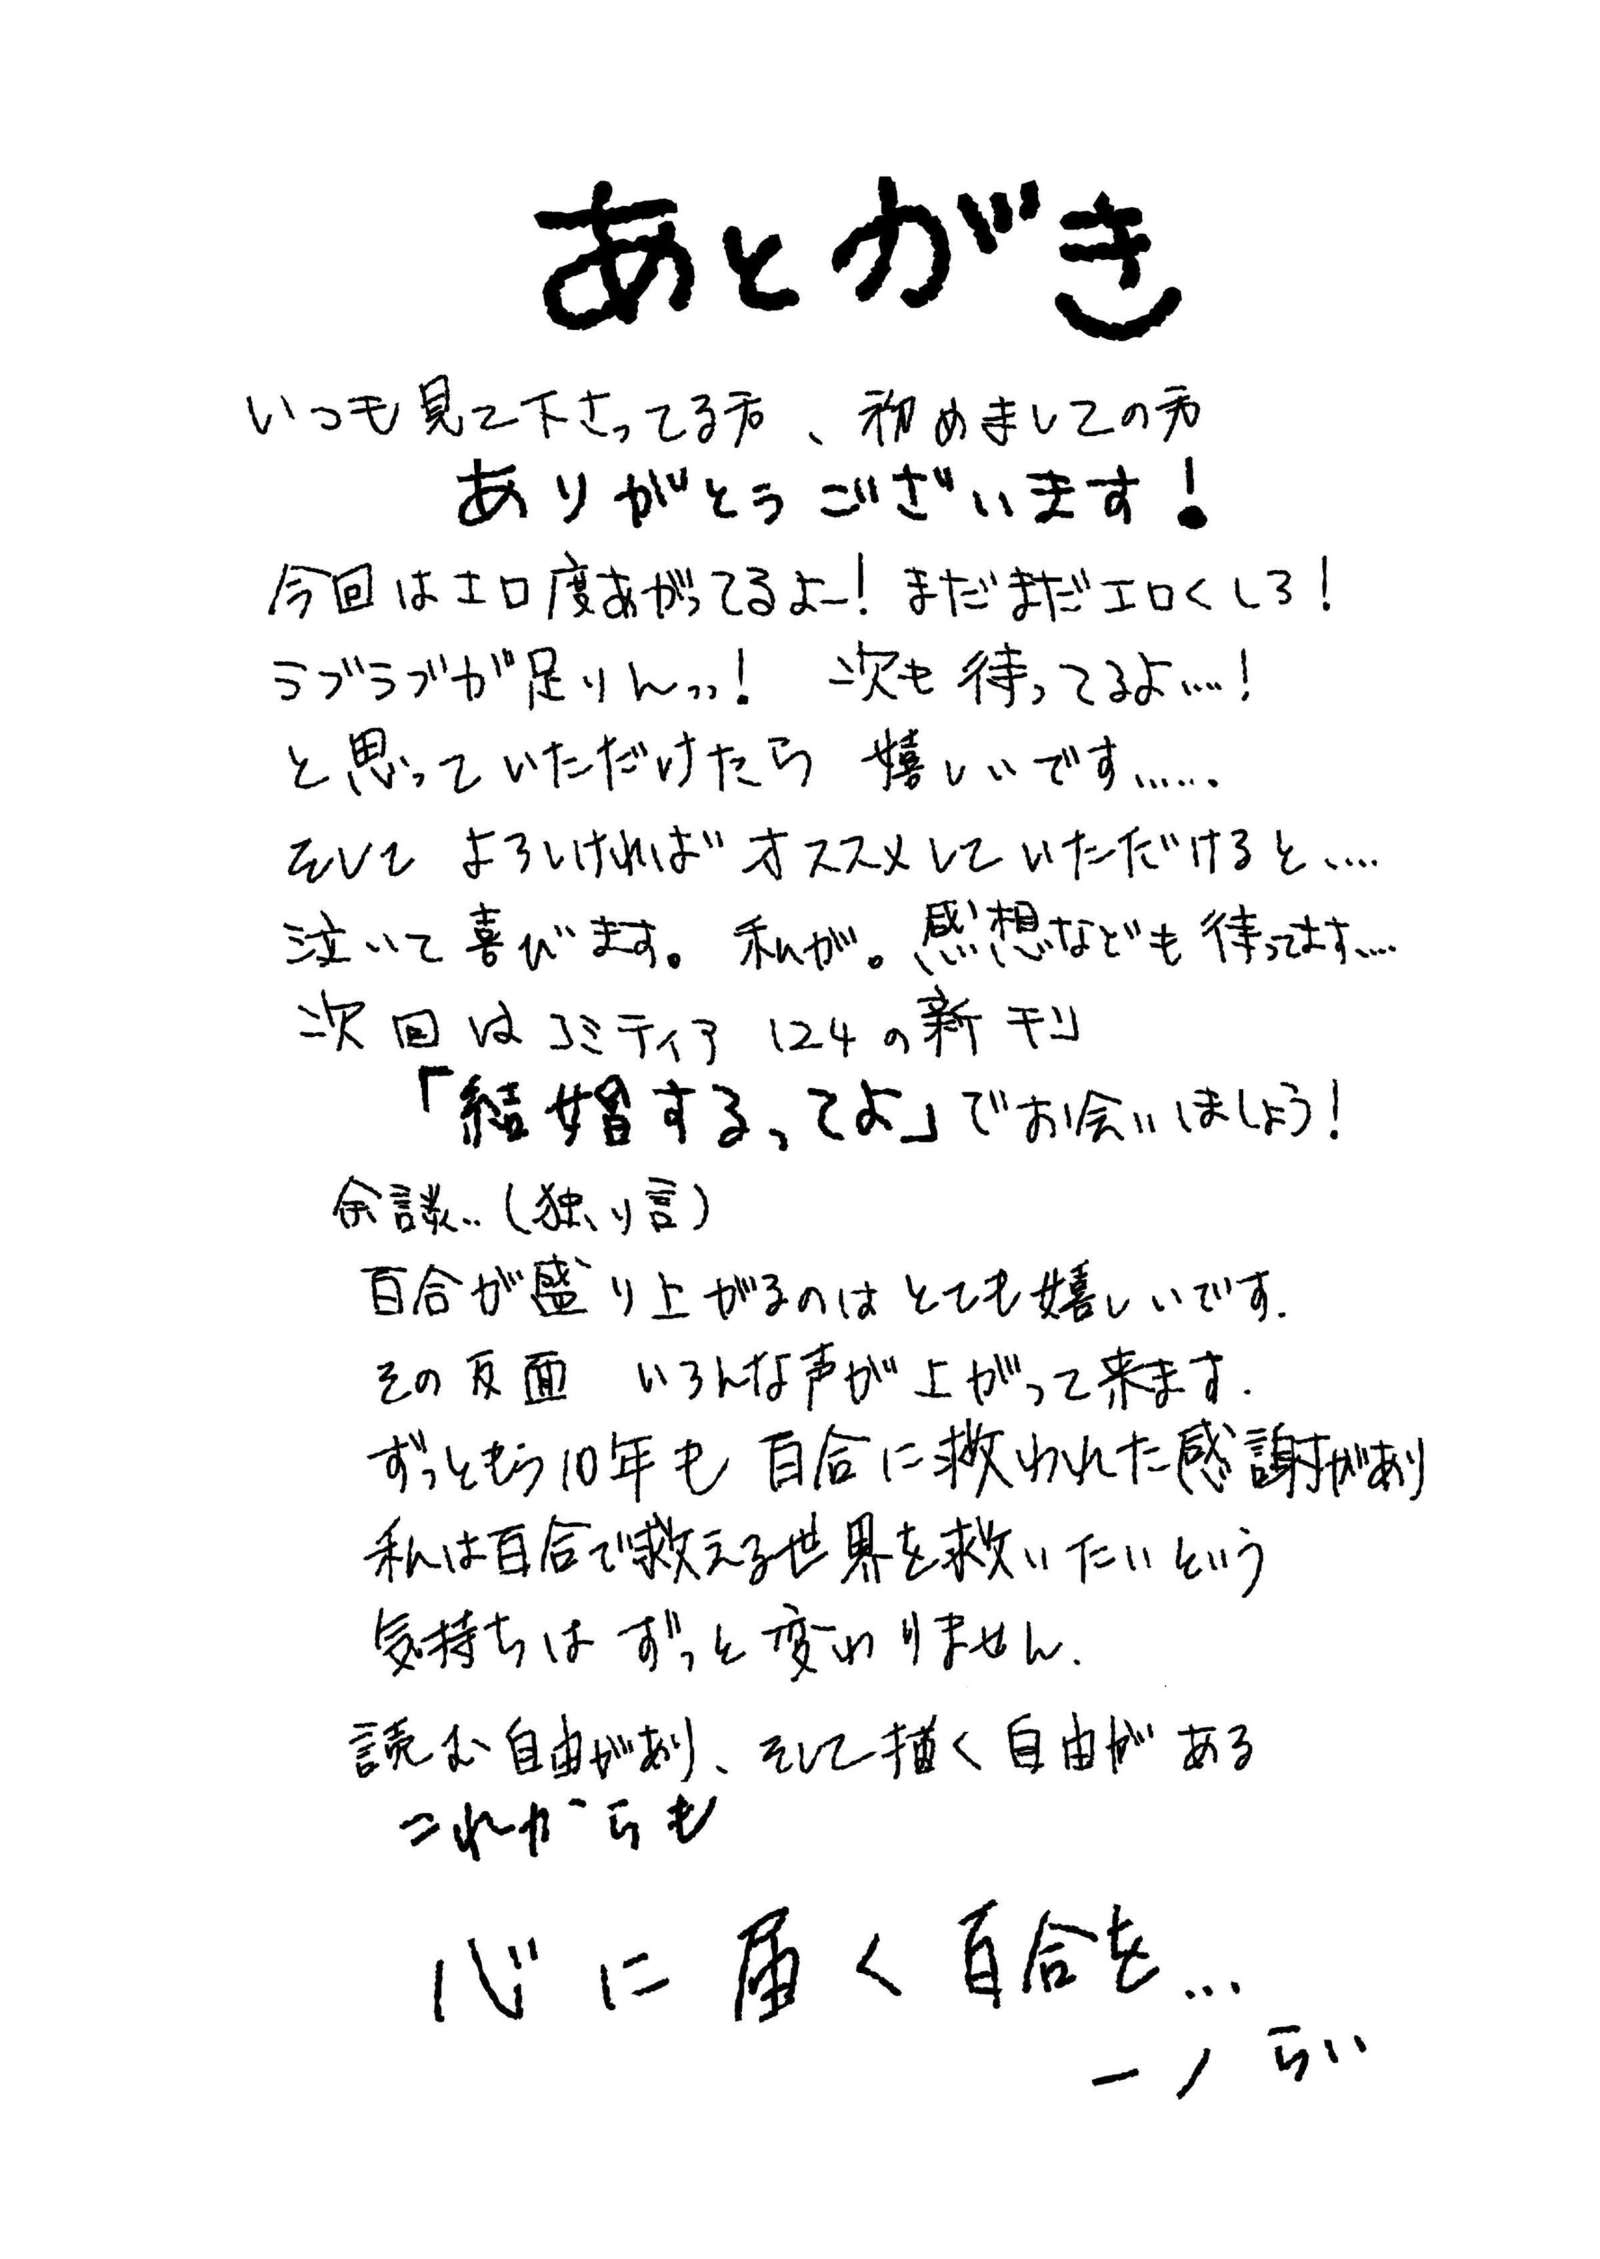 あとがき
いつも見て下さってる方、初めましての方
ありがとうございます!
今回はエロ度あがってるよー!まだまだエロくしろ!
ラブラブが足りんっっ! 次も待ってるよ....!
と思っていただけたら 嬉しいです......
そして よろしければオススメしていただけると....
泣いて喜びます。私が。感想なども待ってます....
次回はコミティア124の新刊
「結婚するってよ」でお会いしましょう!
余談..(独り言)
百合が盛り上がるのはとても嬉しいです.
その反面 いろんな声が上がって来ます.
ずっともう10年も 百合に救われた感謝があり
私は百合で救える世界を救いたいという
気持ちは ずっと変わりません.
読む自由があり、そして描く自由がある
これからも
心に届く百合を...
一ノらい